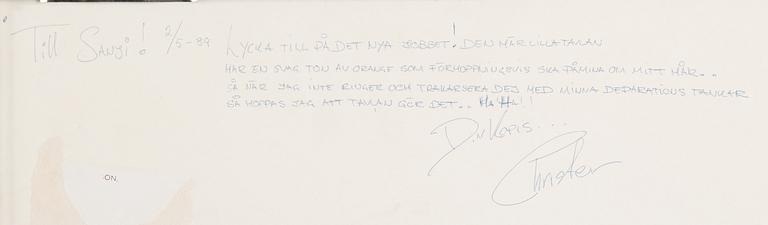 Till Sanji! 2/5-89 LYCKA TILL PÅ DET NYA JOBBET! DEN HÄR LILLA TAVLAN
HAR EN SVAG TON AV ORANGE SOM FÖRHOPPNINGSVIS SKA PÅMINA OM MITT HÅR..
SÅ NÄR JAG INTE RINGER OCH TRAKARSERA DEJ MED MINNA DEPARATIONS TANKAR
SÅ HOPPAS JAG ATT TAVLAN GÖR DET.. HA HA!!
DIN KOPIS...
Christer
ON,